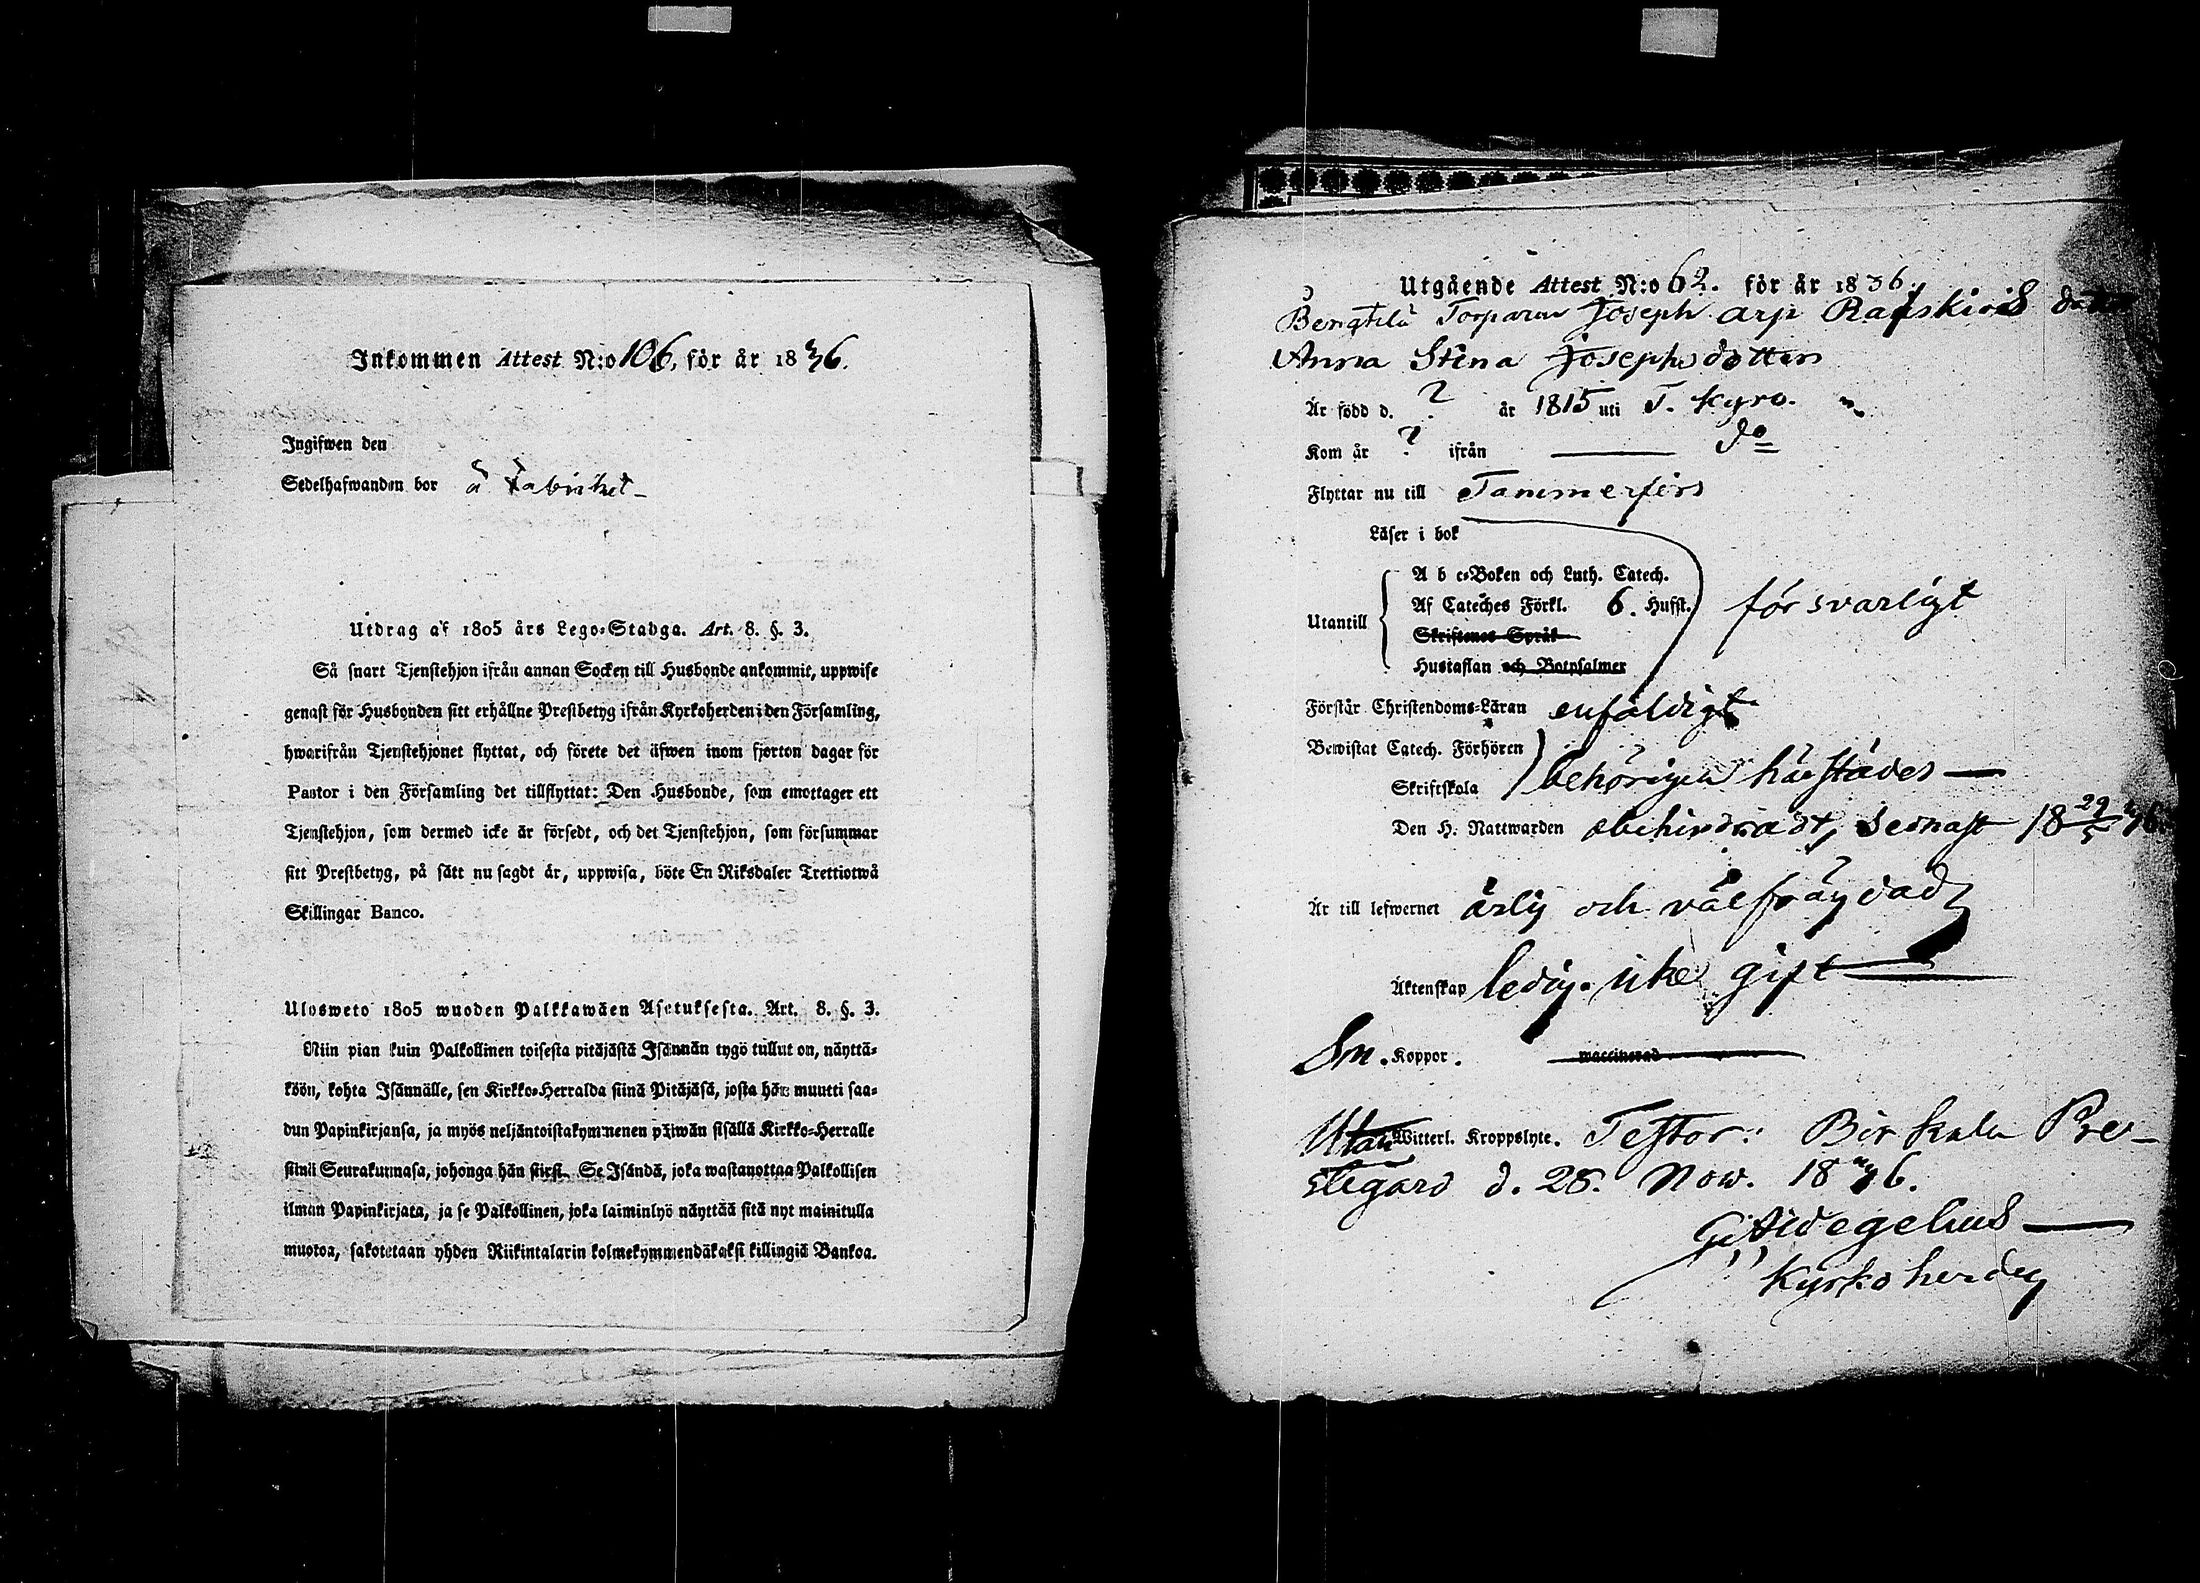 Inkommen Attest N:o 106, för år 1836.
Ingifwen den
Sedelhafwanden bor å Fabriket
Utdrag af 1805 års Lego-Stadga. Art. 8. §. 3.
Så snart Tjenstehjon ifrån annan Socken till Husbonde ankommit, uppwise
genast för Husbonden sitt erhållne Prestbetyg ifrån Kyrkoherden i den Församling,
hwarifrån Tjenstehjonet flyttat, och förete det äfwen inom fjorton dagar för
Pastor i den Församling det tillflyttat: Den Husbonde, som emottager ett
Tjenstehjon, som dermed icke är försedt, och det Tjenstehjon, som försummar
sitt Prestbetyg, på sätt nu sagdt är, uppwisa, böte En Riksdaler Trettiotwå
Skillingar Banco.
Ulosweto 1805 wuoden Palkkawäen Asetuksesta. Art. 8. §. 3.
Niin pian kuin Palkollinen toisesta pitäjästä Isännän tygö tullut on, näyttä-
köön, kohta Isännälle, sen Kirkko-Herralda siinä Pitäjäsä, josta hän muutti saa-
dun Papinkirjansa, ja myös neljäntoistakymmenen päiwän sisällä Kirkko-Herralle
siinä Seurakunnasa, johonga hän siirsi. Se Isändä, joka wastanottaa Palkollisen
ilman Papinkirjata, ja se Palkollinen, joka laiminlyö näyttää sitä nyt mainitulla
muotoa, sakotetaan yhden Riikintalarin kolmekymmendäkaksi killingiä Bankoa.
Utgående Attest N:o 62. för år 1836.
Torparen Joseph arp
Anna Stina Josephsdotter
Är född d. ? år 1815 uti T. Kyro.
Kom år ? ifrån — do
Flyttar nu till Tammerfors
Läser i bok
Utantill
A b c-Boken och Luth. Catech.
Af Cateches Förkl. 6. Hufst. försvarligt
Skriftenes Språk
Hustaflan och Botpsalmer
Förstår Christendoms-Läran enfaldigt
Bewistat Catech. Förhören
Skriftskola behörigen härstädes —
Den H. Nattwarden obehindradt, sednast 18 29/5 36.
Är till lefwernet ärlig och välfrägdad
Äktenskap ledig. icke gift
Sm. Koppor. waccinerad
Utan Witterl. Kroppslyte. Testor: Birkala Pre-
stegård d. 28. Nov. 1836.
G. Aidegelius —
Kyrkoherde